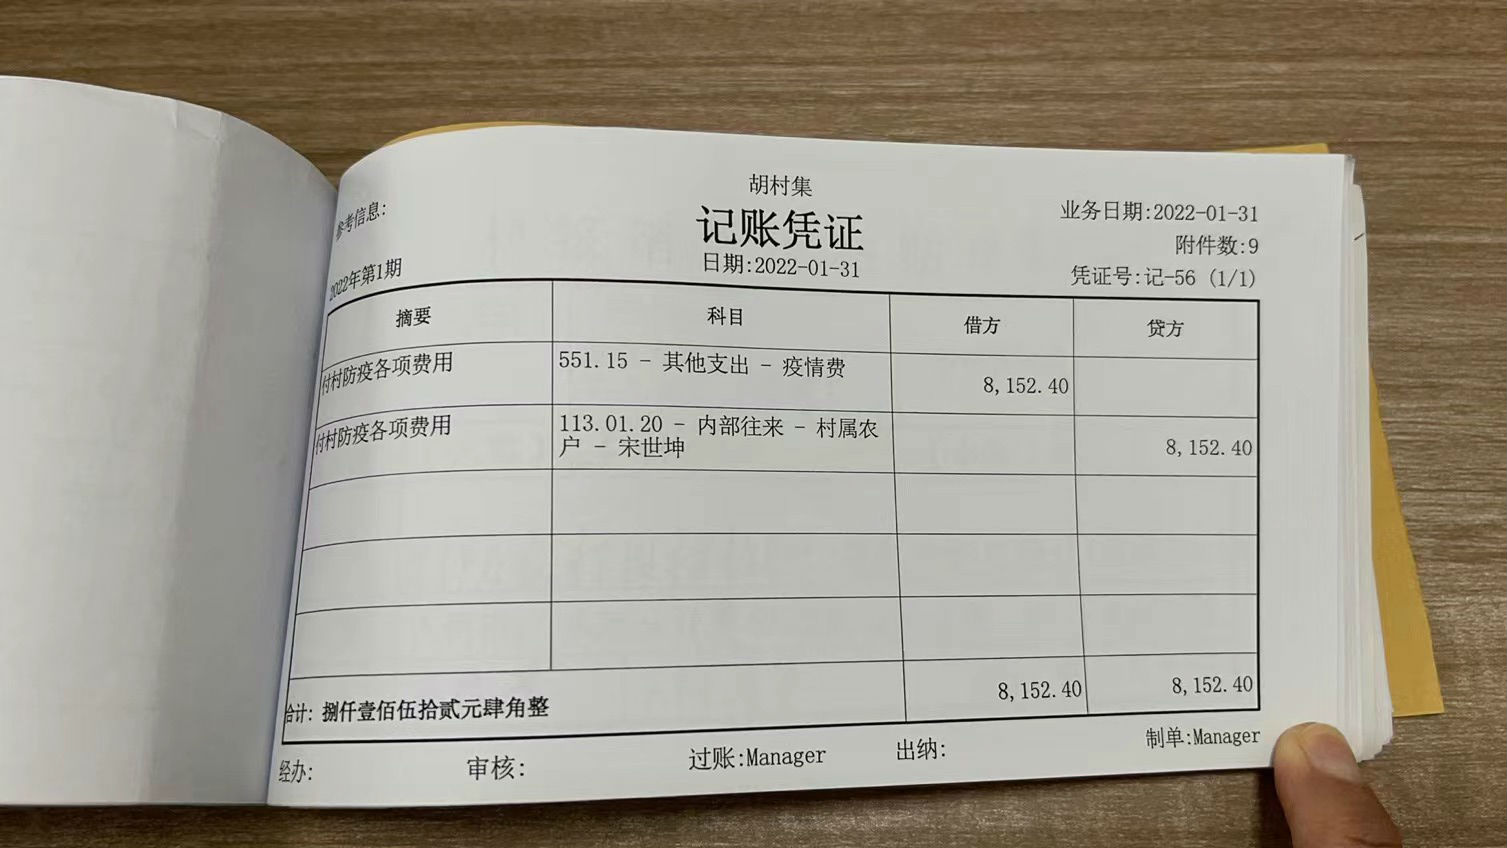 胡村集
参考信息:
记账凭证
业务日期:2022-01-31
附件数:9
2022年第1期
日期:2022-01-31
凭证号:记-56 (1/1)
摘要 科目 借方 贷方
付村防疫各项费用 551.15 - 其他支出 - 疫情费 8,152.40
付村防疫各项费用 113.01.20 - 内部往来 - 村属农
户 - 宋世坤 8,152.40
合计: 捌仟壹佰伍拾贰元肆角整 8,152.40 8,152.40
经办: 审核: 过账:Manager 出纳: 制单:Manager